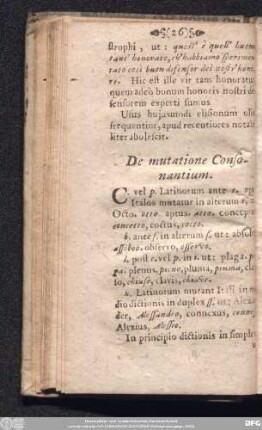 (26)
strophi, ut: quest' è quell' huom
tant' honorato, ch' habbiamo sperimen-
tato così buon defensor del nostr' hono-
re. Hic est ille vir tam honoratus
quem adeò bonum honoris nostri de-
fensorem experti sumus.
Usus hujusmodi elisionum
frequentior, apud recentiores
liter abolescit.
De mutatione Conso-
nantium.
C. vel p. Latinorum ante t.
Italos mutatur in alterum t,
Octo, otto aptus, atto, concept
concetto, coctus, cotto.
b. ante s. in alterum s. ut:
observo, osservo.
l. post c. vel p. in i. ut: plaga, p
ga. plenus, pieno, pluma, piuma,
chiuso, clavis, chiave.
x. Latinorum mutant Itali in
dio dictionis in duplex ss. ut: Alexa
der, Alessandro, connexus,
Alexius, Alesso.
In principio dictionis in simplex